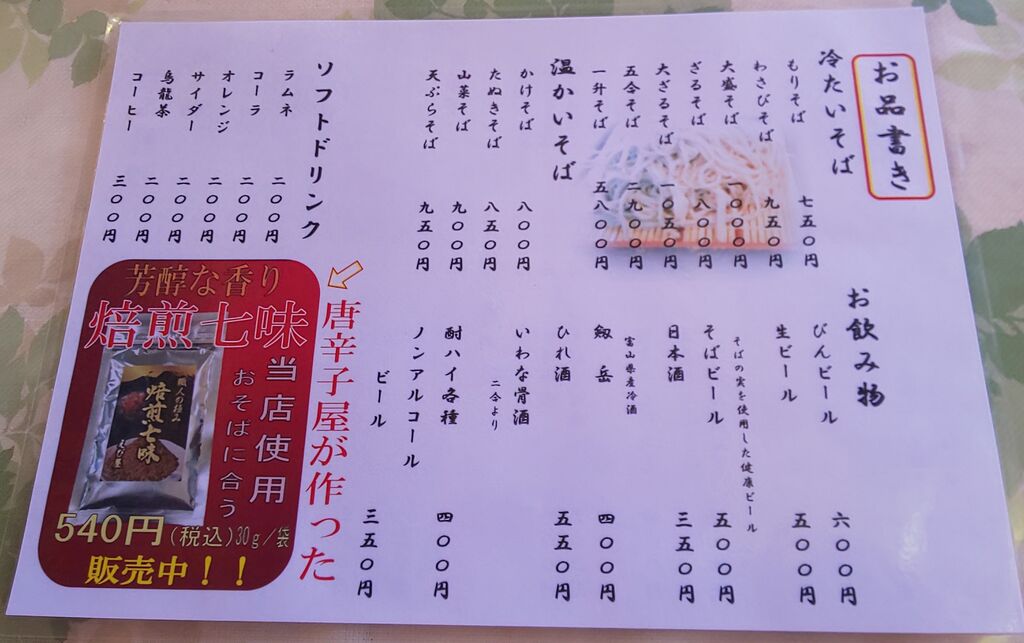 お品書き
冷たいそば
もりそば 七五〇円
わさびそば 九五〇円
大盛そば 一〇〇〇円
ざるそば 八〇〇円
大ざるそば 一〇五〇円
五合そば 二九〇〇円
一升そば 五八〇〇円
温かいそば
かけそば 八〇〇円
たぬきそば 八五〇円
山菜そば 九〇〇円
天ぷらそば 九五〇円
ソフトドリンク
ラムネ 二〇〇円
コーラ 二〇〇円
オレンジ 二〇〇円
サイダー 二〇〇円
烏龍茶 二〇〇円
コーヒー 三〇〇円
お飲み物
びんビール 六〇〇円
生ビール 五〇〇円
そばの実を使用した健康ビール
そばビール 五〇〇円
日本酒 三五〇円
富山県産冷酒
剱岳 四〇〇円
ひれ酒 五五〇円
いわな骨酒
二合より
酎ハイ各種 四〇〇円
ノンアルコール
ビール 三五〇円
唐辛子屋が作った
芳醇な香り
焙煎七味
当店使用
おそばに合う
職人の極み
焙煎七味
540円(税込)30g/袋
販売中!!